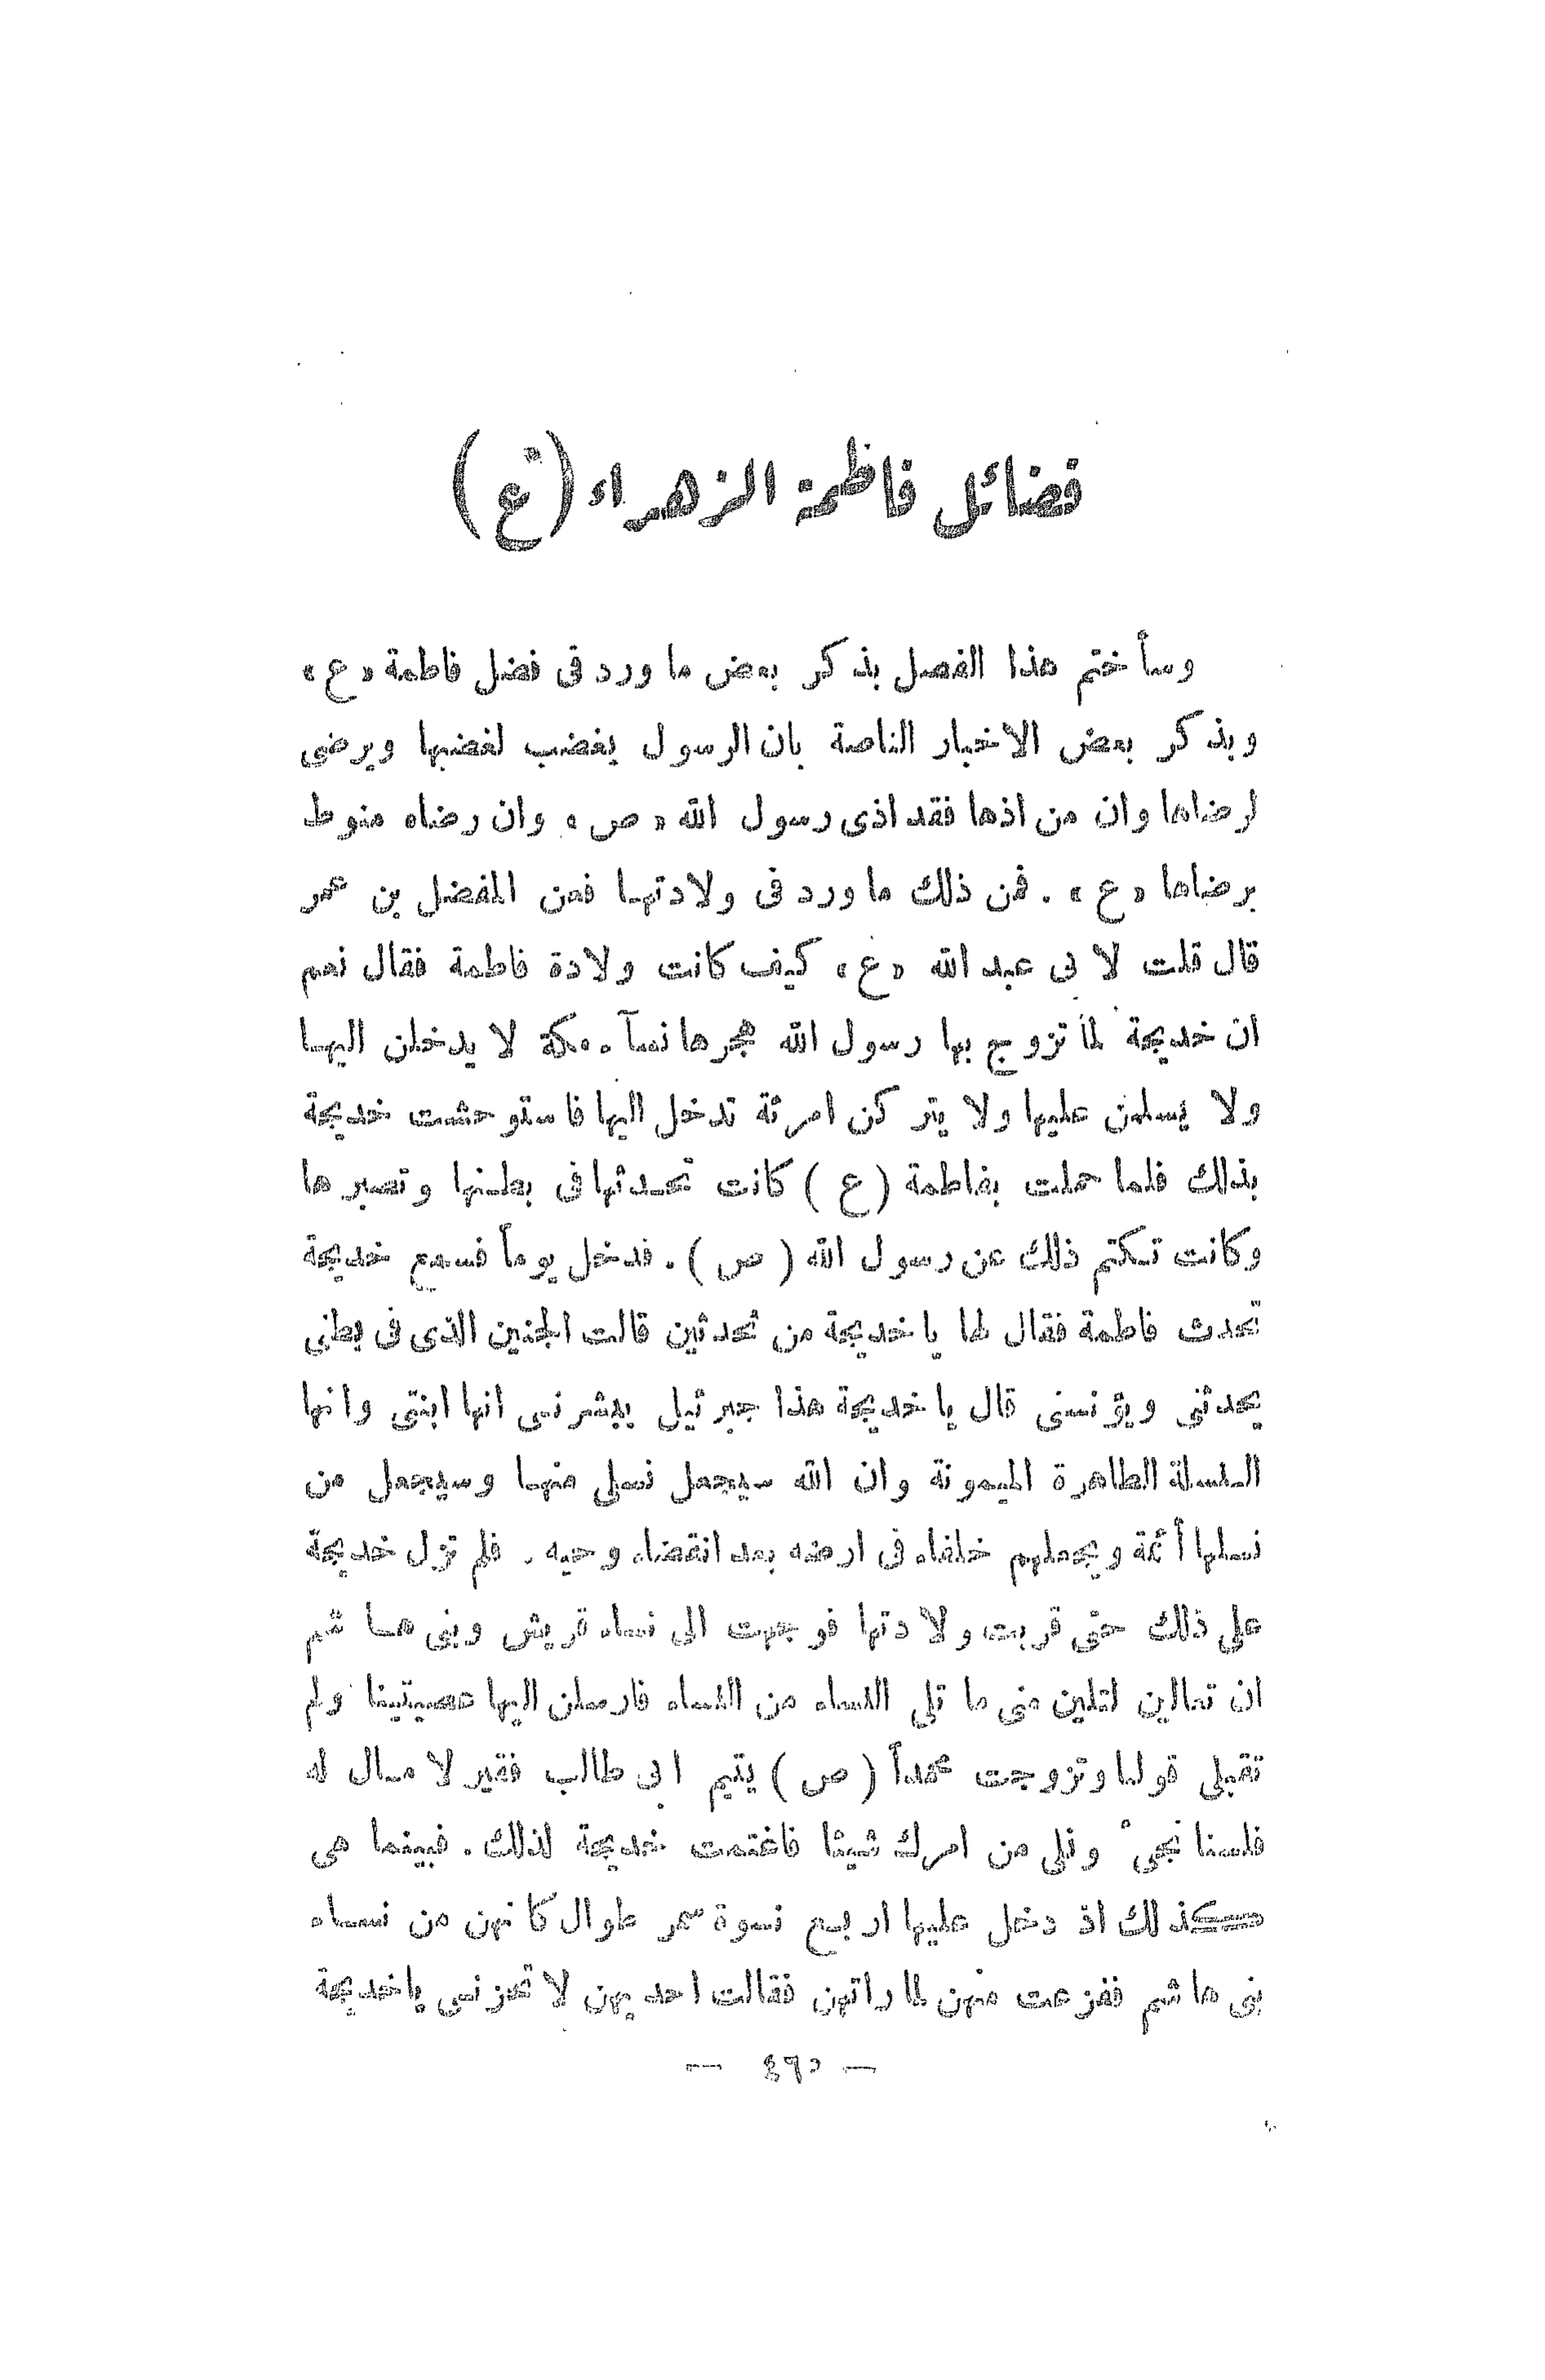 فضائل فاطمة الزهراء (ع)
وسأختم هذا الفصل بذكر بعض ما ورد في فضل فاطمة «ع»
وبذكر بعض الاخبار الناصة بان الرسول يغضب لغضبها ويرضى
لرضاها وان من اذها فقد اذى رسول الله «ص» وان رضاه منوط
برضاها «ع» . فمن ذلك ما ورد في ولادتها فعن المفضل بن عمر
قال قلت لابي عبد الله «ع» كيف كانت ولادة فاطمة فقال نعم
ان خديجة لما تزوج بها رسول الله هجرها نسآء مكة لا يدخلن اليها
ولا يسلمن عليها ولا يتركن امرئة تدخل اليها فاستوحشت خديجة
بذلك فلما حملت بفاطمة (ع) كانت تحدثها في بطنها وتصبرها
وكانت تكتم ذلك عن رسول الله (ص) . فدخل يوماً فسمع خديجة
تحدث فاطمة فقال لها يا خديجة من تحدثين قالت الجنين الذي في بطني
يحدثني ويؤنسني قال يا خديجة هذا جبرئيل يبشرني انها ابنتي وانها
النسلة الطاهرة الميمونة وان الله سيجعل نسلي منها وسيجعل من
نسلها أئمة ويجعلهم خلفاء في ارضه بعد انقضاء وحيه . فلم تزل خديجة
على ذلك حتى قربت ولادتها فوجهت الى نساء قريش وبني هاشم
ان تعالين لتلين مني ما تلي النساء من النساء فارسلن اليها عصيتينا ولم
تقبلي قولنا وتزوجت محمداً (ص) يتيم ابي طالب فقير لا مال له
فلسنا نجيء ونلي من امرك شيئا فاغتمت خديجة لذلك . فبينما هي
كذلك اذ دخل عليها اربع نسوة سمر طوال كانهن من نساء
بني هاشم ففزعت منهن لما راتهن فقالت احديهن لا تحزني يا خديجة
— ٤٦٥ —